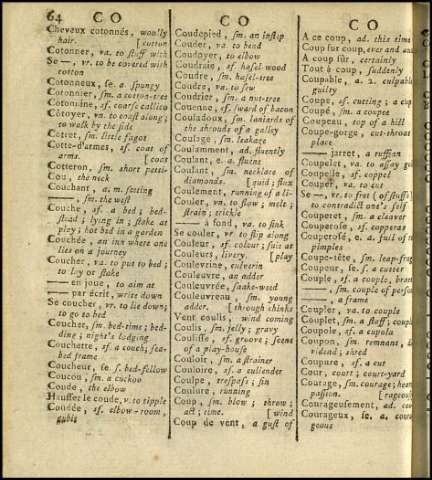 64 C O
Cheveux cotonnés, woolly
hair. [cotton
Cotonner, va. to stuff with
Se —, vr. to be covered with
cotton
Cotonneux, se. a. spungy
Cotonnier, sm. a cotton-tree
Cotonine, sf. coarse callico
Côtoyer, vn. to coast along;
to walk by the side
Cotret, sm. little fagot
Cotte-d'armes, sf. coat of
arms. [coat
Cotteron, sm. short petti-
Cou, the nick
Couchant, a. m. setting
——, sm. the west
Couche, sf. a bed; bed-
stead; lying in; stake at
play; hot bed in garden
Couchée, an inn where one
lies on a journey
Coucher, va. to put to bed;
to lay or stake
—— en joue, to aim at
—— par écrit, write down
Se coucher, vr. to lie down;
to go to bed
Coucher, sm. bed-time; bed-
ding; night's lodging
Couchette, sf. a couch; sea-
bed frame
Coucheur, se s. bed-fellow
Coucou, sm. a cuckoo
Coude, the elbow
Hausser le coude, v. to tipple
Coudée, sf. elbow-room,
gubis
C O
Coudepied, sm. an instep
Couder, va. to bend
Coudoyer, to elbow
Coudraie, sf. hasel-wood
Coudre, sm. hasel-tree
Coudre, va. to sew
Coudrier, sm. a nut-tree
Couenne, sf. sward of bacon
Couladoux, sm. laniards of
the shrouds of a galley
Coulage, sm. leakage
Coulamment, ad. fluently
Coulant, e. a. fluent
Coulant, sm. necklace of
diamonds. [guid; flux
Coulement, running of a li-
Couler, vn. to flow; melt;
strain; trickle
—— à fond, va. to sink
Se couler, vr to slip along
Couleur, sf. colour; suit at
Couleurs, livery. [play
Coulevrine, culverin
Couleuvre, an adder
Couleuvrée, snake-weed
Couleuvreau, sm. young
adder. [through chinks
Vent coulis, wind coming
Coulis, sm. jelly; gravy
Coulisse, sf. groove; scene
of a play-house
Couloir, sm. a strainer
Couloire, sf. a cullender
Coulpe, trespass; sin
Coulure, running
Coup, sm. blow; throw;
act; time. [wind
Coup de vent, a gust of
C O
A ce coup, ad. this time
Coup sur coup, ever and
A coup sûr, certainly
Tout à coup, suddenly
Coupable, a. 2. culpable
guilty
Coupe, sf. cutting; a cup
Coupé, sm. a coupee
Coupeau, top of a hill
Coupe-gorge, cut-throat
place
—— jarret, a ruffian
Coupeler, va. to assay
Coupelle, sf. coppel
Couper, va. to cut
Se —, vr. to fret (of stuffs)
to contradict one's self
Couperet, sm. a cleaver
Couperose, sf. copperas
Couperosé, e. a. full of
pimples
Coupe-tête, sm. leap-frog
Coupeur, se. s. a cutter
Couple, sf. a couple, brace
——, sm. couple of
——, a frame
Coupler, va. to couple
Couplet, sm. a
Coupole, sf. a cupola
Coupon, sm. remnant,
vidend; shred
Coupure, sf. a cut
Cour, court; court-yard
Courage, sm. courage;
passion. [
Courageusement, ad.
Courageux, se. a.
geous